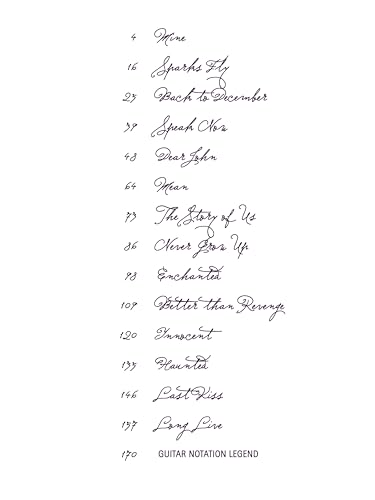 4 Mine
16 Sparks Fly
25 Back to December
39 Speak Now
48 Dear John
64 Mean
73 The Story of Us
86 Never Grow Up
98 Enchanted
109 Better than Revenge
120 Innocent
135 Haunted
146 Last Kiss
157 Long Live
170 GUITAR NOTATION LEGEND